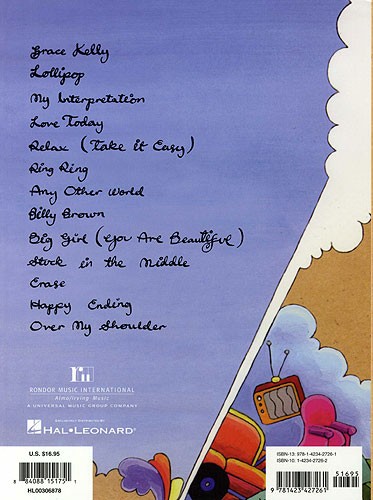 Grace Kelly
Lollipop
My Interpretation
Love Today
Relax (Take it Easy)
Ring Ring
Any Other World
Billy Brown
Big Girl (You Are Beautiful)
Stuck in the Middle
Erase
Happy Ending
Over My Shoulder
RONDOR MUSIC INTERNATIONAL
Almo/Irving Music
A UNIVERSAL MUSIC GROUP COMPANY
HAL•LEONARD®
U.S. $16.95
8 84088 15175 1
HL00306878
ISBN-13: 978-1-4234-2726-1
ISBN-10: 1-4234-2726-2
51695
9 781423 427261